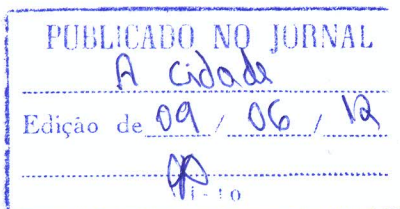 PUBLICADO NO JORNAL
A cidade
Edição de 09 / 06 / 12